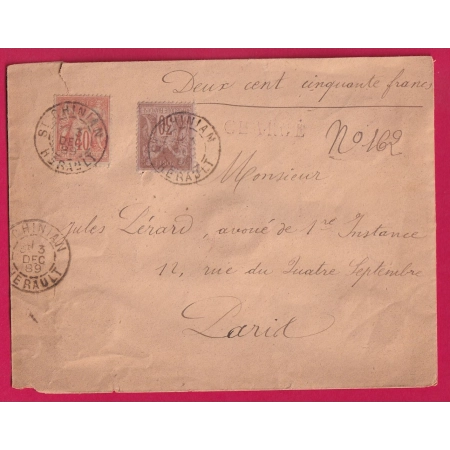 Deux cent cinquante francs
ST CHINIAN
3
DEC
HERAULT
40
30
CHINIAN
HERAULT
CHARGÉ
No 162
Monsieur
Jules Lérard, avoué de 1re Instance
12, rue du Quatre Septembre
Paris
CHINIAN
3
DEC
89
HERAULT